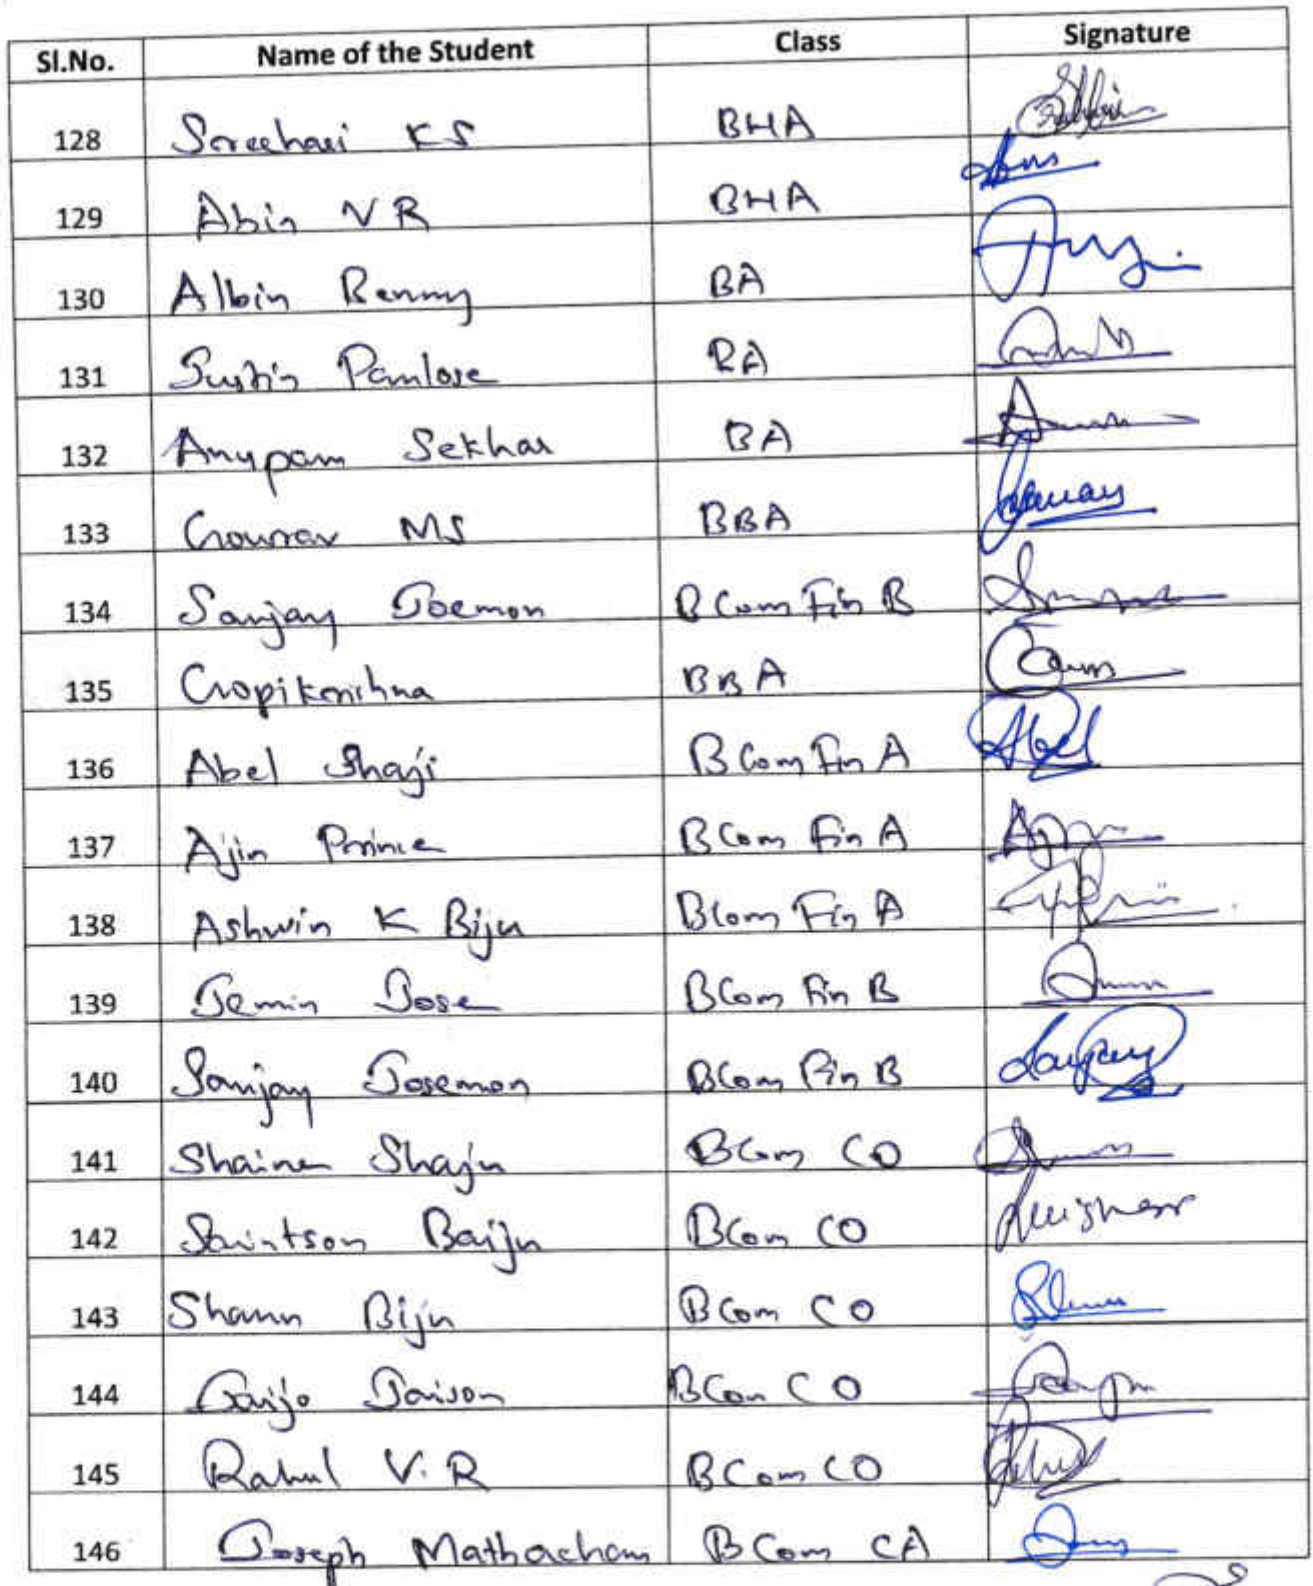 Sl.No. Name of the Student Class Signature
128 Sreehari KS BHA
129 Abin V R BHA
130 Albin Benny BA
131 Justin Paulose BA
132 Anupam Sekhar BA
133 Gourav MS BBA
134 Sanjay Joemon B Com Fin B
135 Gopikrishna BBA
136 Abel Shaji B Com Fin A Abel
137 Ajin Prince B Com Fin A
138 Ashwin K Biju BCom Fin A
139 Jemin Jose BCom Fin B
140 Sanjay Josemon BCom Fin B Sanjay
141 Shainen Shaju BCom CO
142 Saintson Baiju BCom CO
143 Shann Biju BCom CO
144 Jaijo Jaison BCom CO
145 Rahul V.R BCom CO
146 Joseph Mathachan BCom CA